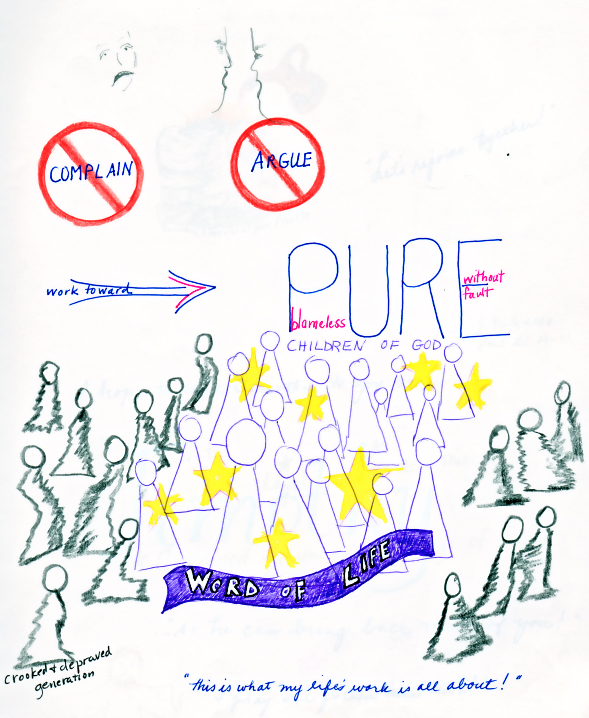 COMPLAIN
ARGUE
work toward
PURE
without
fault
blameless
CHILDREN OF GOD
WORD OF LIFE
crooked & depraved
generation
"this is what my life's work is all about!"